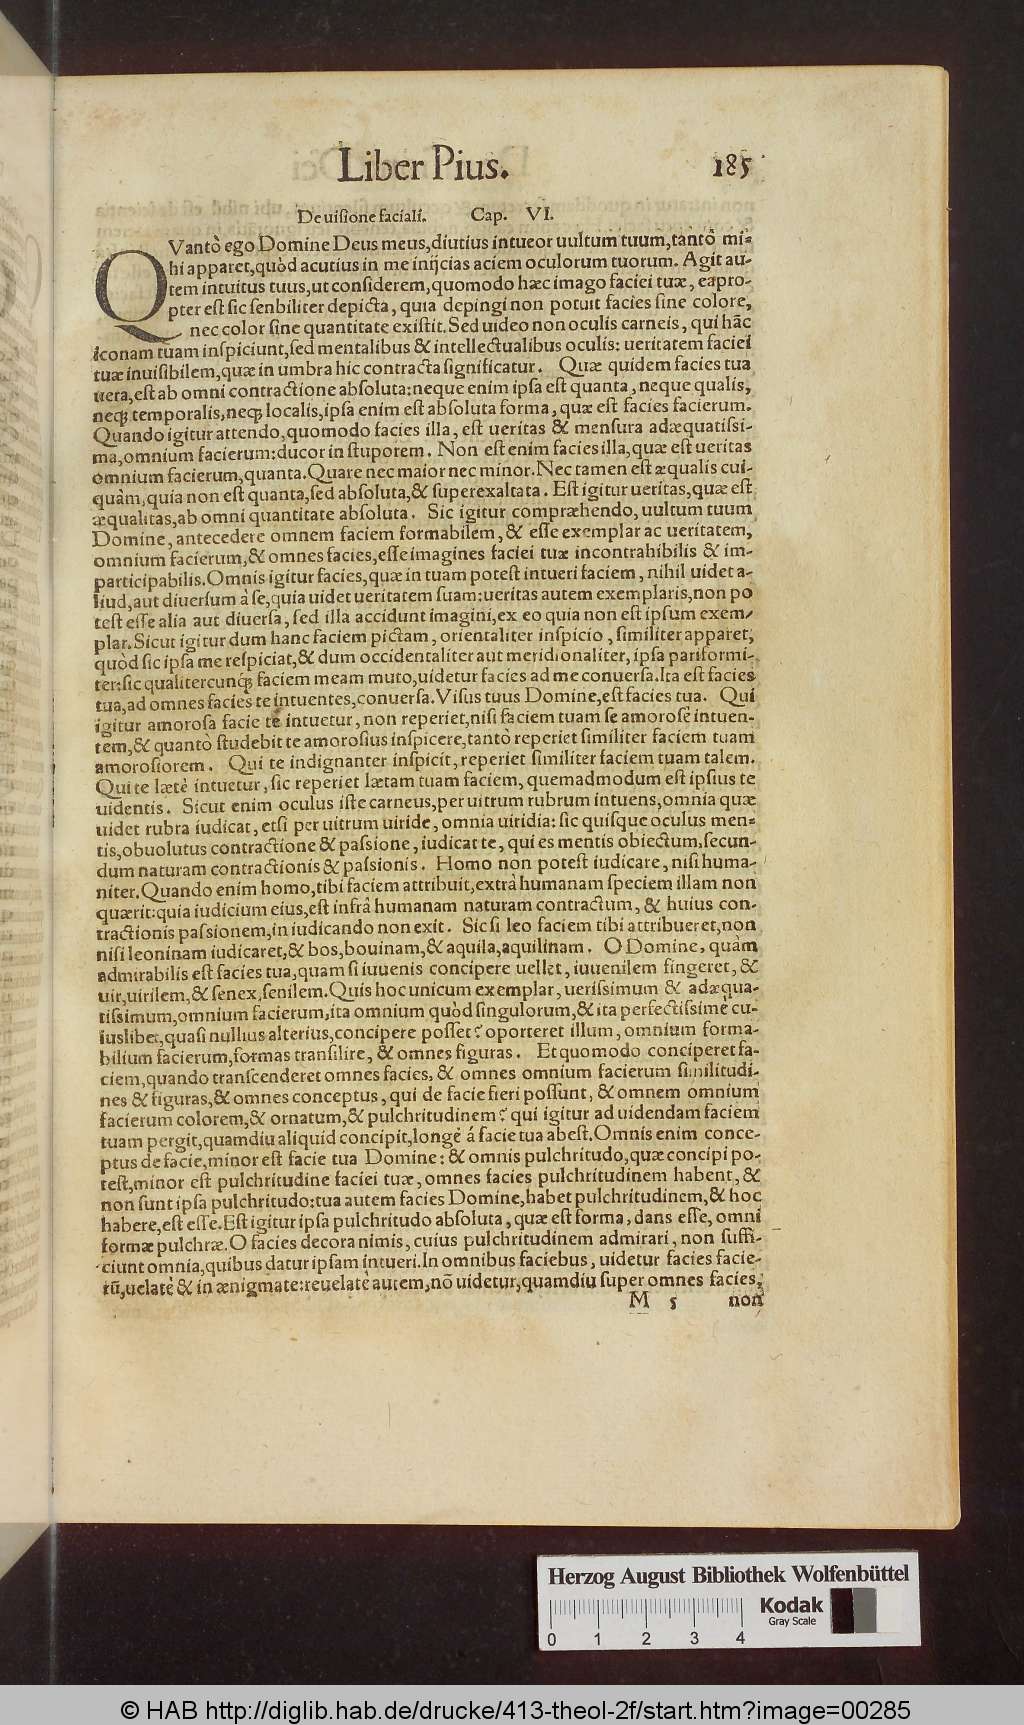 Liber Pius. 185
De uiſione faciali. Cap. VI.
QVantò ego Domine Deus meus, diutius intueor uultum tuum, tantò mi-
hi apparet, quòd acutius in me inijcias aciem oculorum tuorum. Agit au-
tem intuitus tuus, ut conſiderem, quomodo hæc imago faciei tuæ, eapro-
pter eſt ſic ſenbiliter depicta, quia depingi non potuit facies ſine colore,
nec color ſine quantitate exiſtit. Sed uideo non oculis carneis, qui hāc
iconam tuam inſpiciunt, ſed mentalibus & intellectualibus oculis: ueritatem faciei
tuæ inuiſibilem, quæ in umbra hic contracta ſignificatur. Quæ quidem facies tua
uera, eſt ab omni contractione abſoluta: neque enim ipſa eſt quanta, neque qualis,
neq́; temporalis, neq́; localis, ipſa enim eſt abſoluta forma, quæ eſt facies facierum.
Quando igitur attendo, quomodo facies illa, eſt ueritas & menſura adæquatiſsi-
ma, omnium facierum: ducor in ſtuporem. Non eſt enim facies illa, quæ eſt ueritas
omnium facierum, quanta. Quare nec maior nec minor. Nec tamen eſt æqualis cui-
quàm, quia non eſt quanta, ſed abſoluta, & ſuperexaltata. Eſt igitur ueritas, quæ eſt
æqualitas, ab omni quantitate abſoluta. Sic igitur compræhendo, uultum tuum
Domine, antecedere omnem faciem formabilem, & eſſe exemplar ac ueritatem,
omnium facierum, & omnes facies, eſſe imagines faciei tuæ incontrahibilis & im-
participabilis. Omnis igitur facies, quæ in tuam poteſt intueri faciem, nihil uidet a-
liud, aut diuerſum à ſe, quia uidet ueritatem ſuam: ueritas autem exemplaris, non po
teſt eſſe alia aut diuerſa, ſed illa accidunt imagini, ex eo quia non eſt ipſum exem-
plar. Sicut igitur dum hanc faciem pictam, orientaliter inſpicio, ſimiliter apparet,
quòd ſic ipſa me reſpiciat, & dum occidentaliter aut meridionaliter, ipſa pariformi-
ter: ſic qualitercunq́; faciem meam muto, uidetur facies ad me conuerſa. Ita eſt facies
tua, ad omnes facies te intuentes, conuerſa. Viſus tuus Domine, eſt facies tua. Qui
igitur amoroſa facie te intuetur, non reperiet, niſi faciem tuam ſe amoroſè intuen-
tem, & quantò ſtudebit te amoroſius inſpicere, tantò reperiet ſimiliter faciem tuam
amoroſiorem. Qui te indignanter inſpicit, reperiet ſimiliter faciem tuam talem.
Qui te lætè intuetur, ſic reperiet lætam tuam faciem, quemadmodum eſt ipſius te
uidentis. Sicut enim oculus iſte carneus, per uitrum rubrum intuens, omnia quæ
uidet rubra iudicat, etſi per uitrum uiride, omnia uiridia: ſic quiſque oculus men-
tis, obuolutus contractione & paſsione, iudicat te, qui es mentis obiectum, ſecun-
dum naturam contractionis & paſsionis. Homo non poteſt iudicare, niſi huma-
niter. Quando enim homo, tibi faciem attribuit, extrà humanam ſpeciem illam non
quærit: quia iudicium eius, eſt infrà humanam naturam contractum, & huius con-
tractionis paſsionem, in iudicando non exit. Sic ſi leo faciem tibi attribueret, non
niſi leoninam iudicaret, & bos, bouinam, & aquila, aquilinam. O Domine, quàm
admirabilis eſt facies tua, quam ſi iuuenis concipere uellet, iuuenilem fingeret, &
uir, uirilem, & ſenex, ſenilem. Quis hoc unicum exemplar, ueriſsimum & adæqua-
tiſsimum, omnium facierum, ita omnium quòd ſingulorum, & ita perfectiſsimè cu-
iuslibet, quaſi nullius alterius, concipere poſſet? oporteret illum, omnium forma-
bilium facierum, formas tranſilire, & omnes figuras. Et quomodo conciperet fa-
ciem, quando tranſcenderet omnes facies, & omnes omnium facierum ſimilitudi-
nes & figuras, & omnes conceptus, qui de facie fieri poſſunt, & omnem omnium
facierum colorem, & ornatum, & pulchritudinem? qui igitur ad uidendam faciem
tuam pergit, quamdiu aliquid concipit, longè á facie tua abeſt. Omnis enim conce-
ptus de facie, minor eſt facie tua Domine: & omnis pulchritudo, quæ concipi po-
teſt, minor eſt pulchritudine faciei tuæ, omnes facies pulchritudinem habent, &
non ſunt ipſa pulchritudo: tua autem facies Domine, habet pulchritudinem, & hoc
habere, eſt eſſe. Eſt igitur ipſa pulchritudo abſoluta, quæ eſt forma, dans eſſe, omni
formæ pulchræ. O facies decora nimis, cuius pulchritudinem admirari, non ſuffi-
ciunt omnia, quibus datur ipſam intueri. In omnibus faciebus, uidetur facies facie-
rū, uelatè & in ænigmate: reuelatè autem, nō uidetur, quamdiu ſuper omnes facies,
M 5 non
Herzog August Bibliothek Wolfenbüttel
Kodak
Gray Scale
0 1 2 3 4
© HAB http://diglib.hab.de/drucke/413-theol-2f/start.htm?image=00285